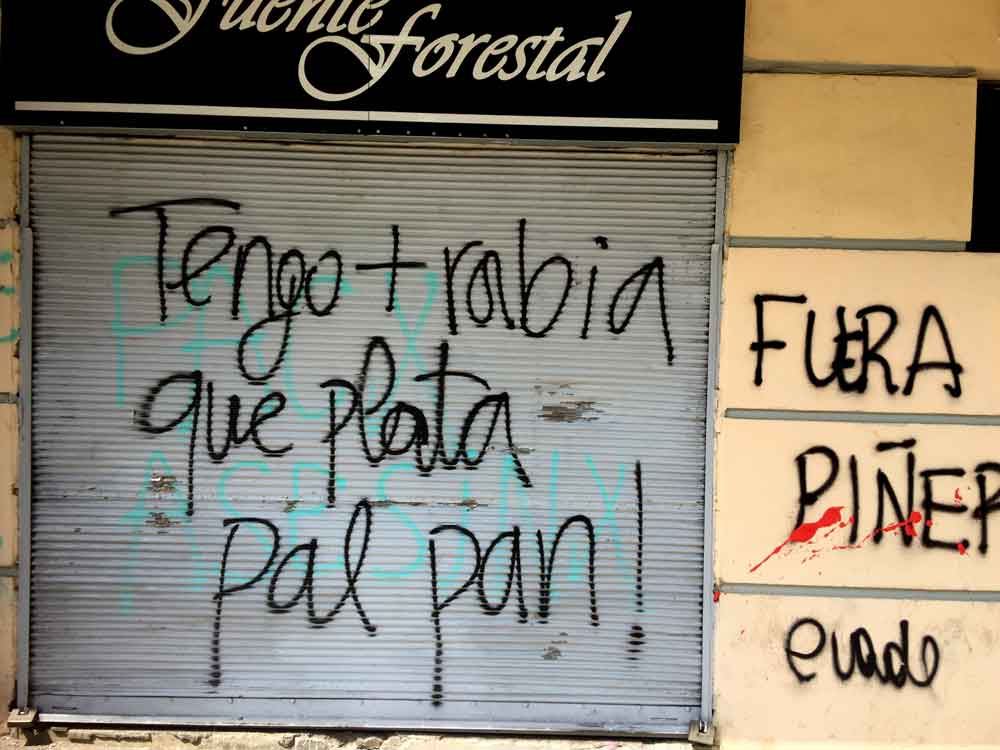 Fuente
Forestal
Tengo + rabia
que plata
pal pan!
FUERA
PIÑER
evade